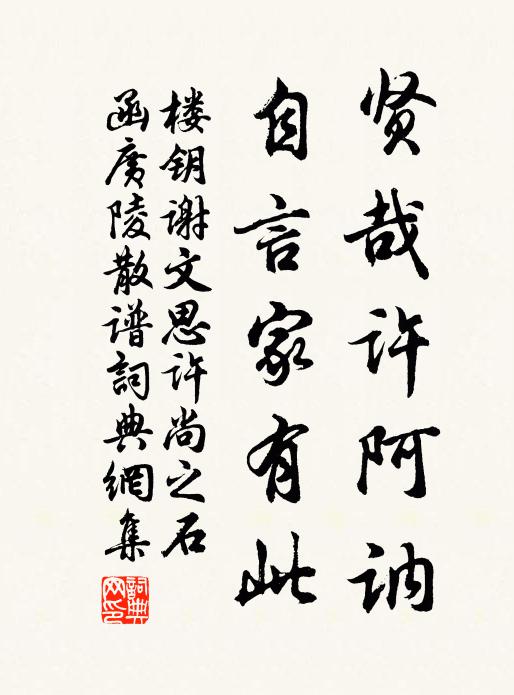 贤哉许阿讷
自言家有此
楼钥谢文思许尚之石
函广陵散谱詞典網集
詞典
网印